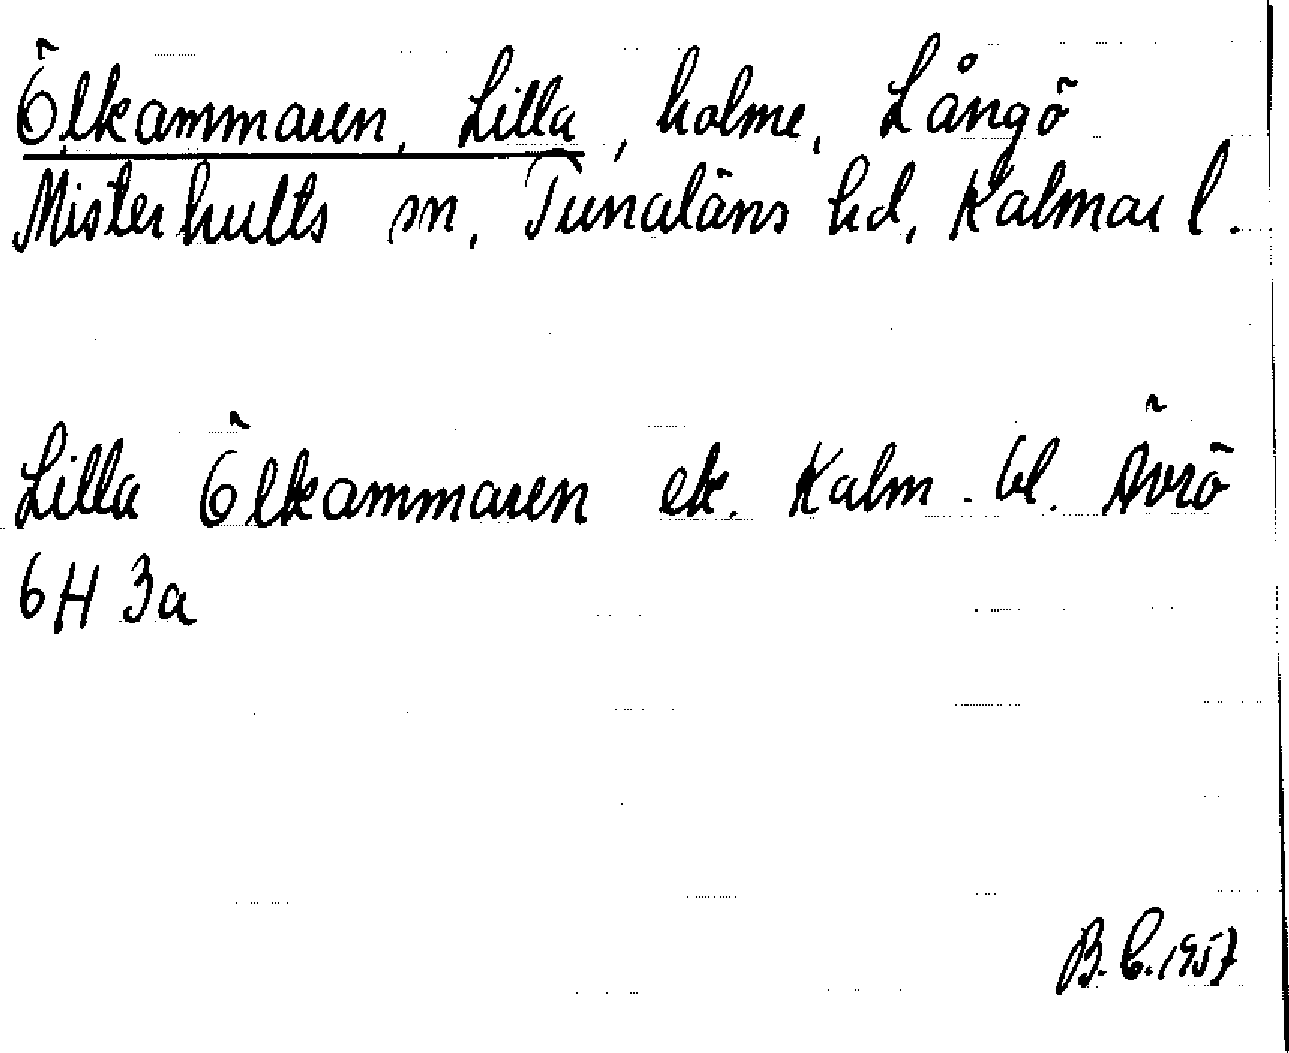 Ölkammaren, Lilla, holme, Långö
Misterhults sn, Tunaläns hd, Kalmar l.
Lilla Ölkammaren ek. Kalm. bl. Ävrö
6H 3a
B. C. 1957